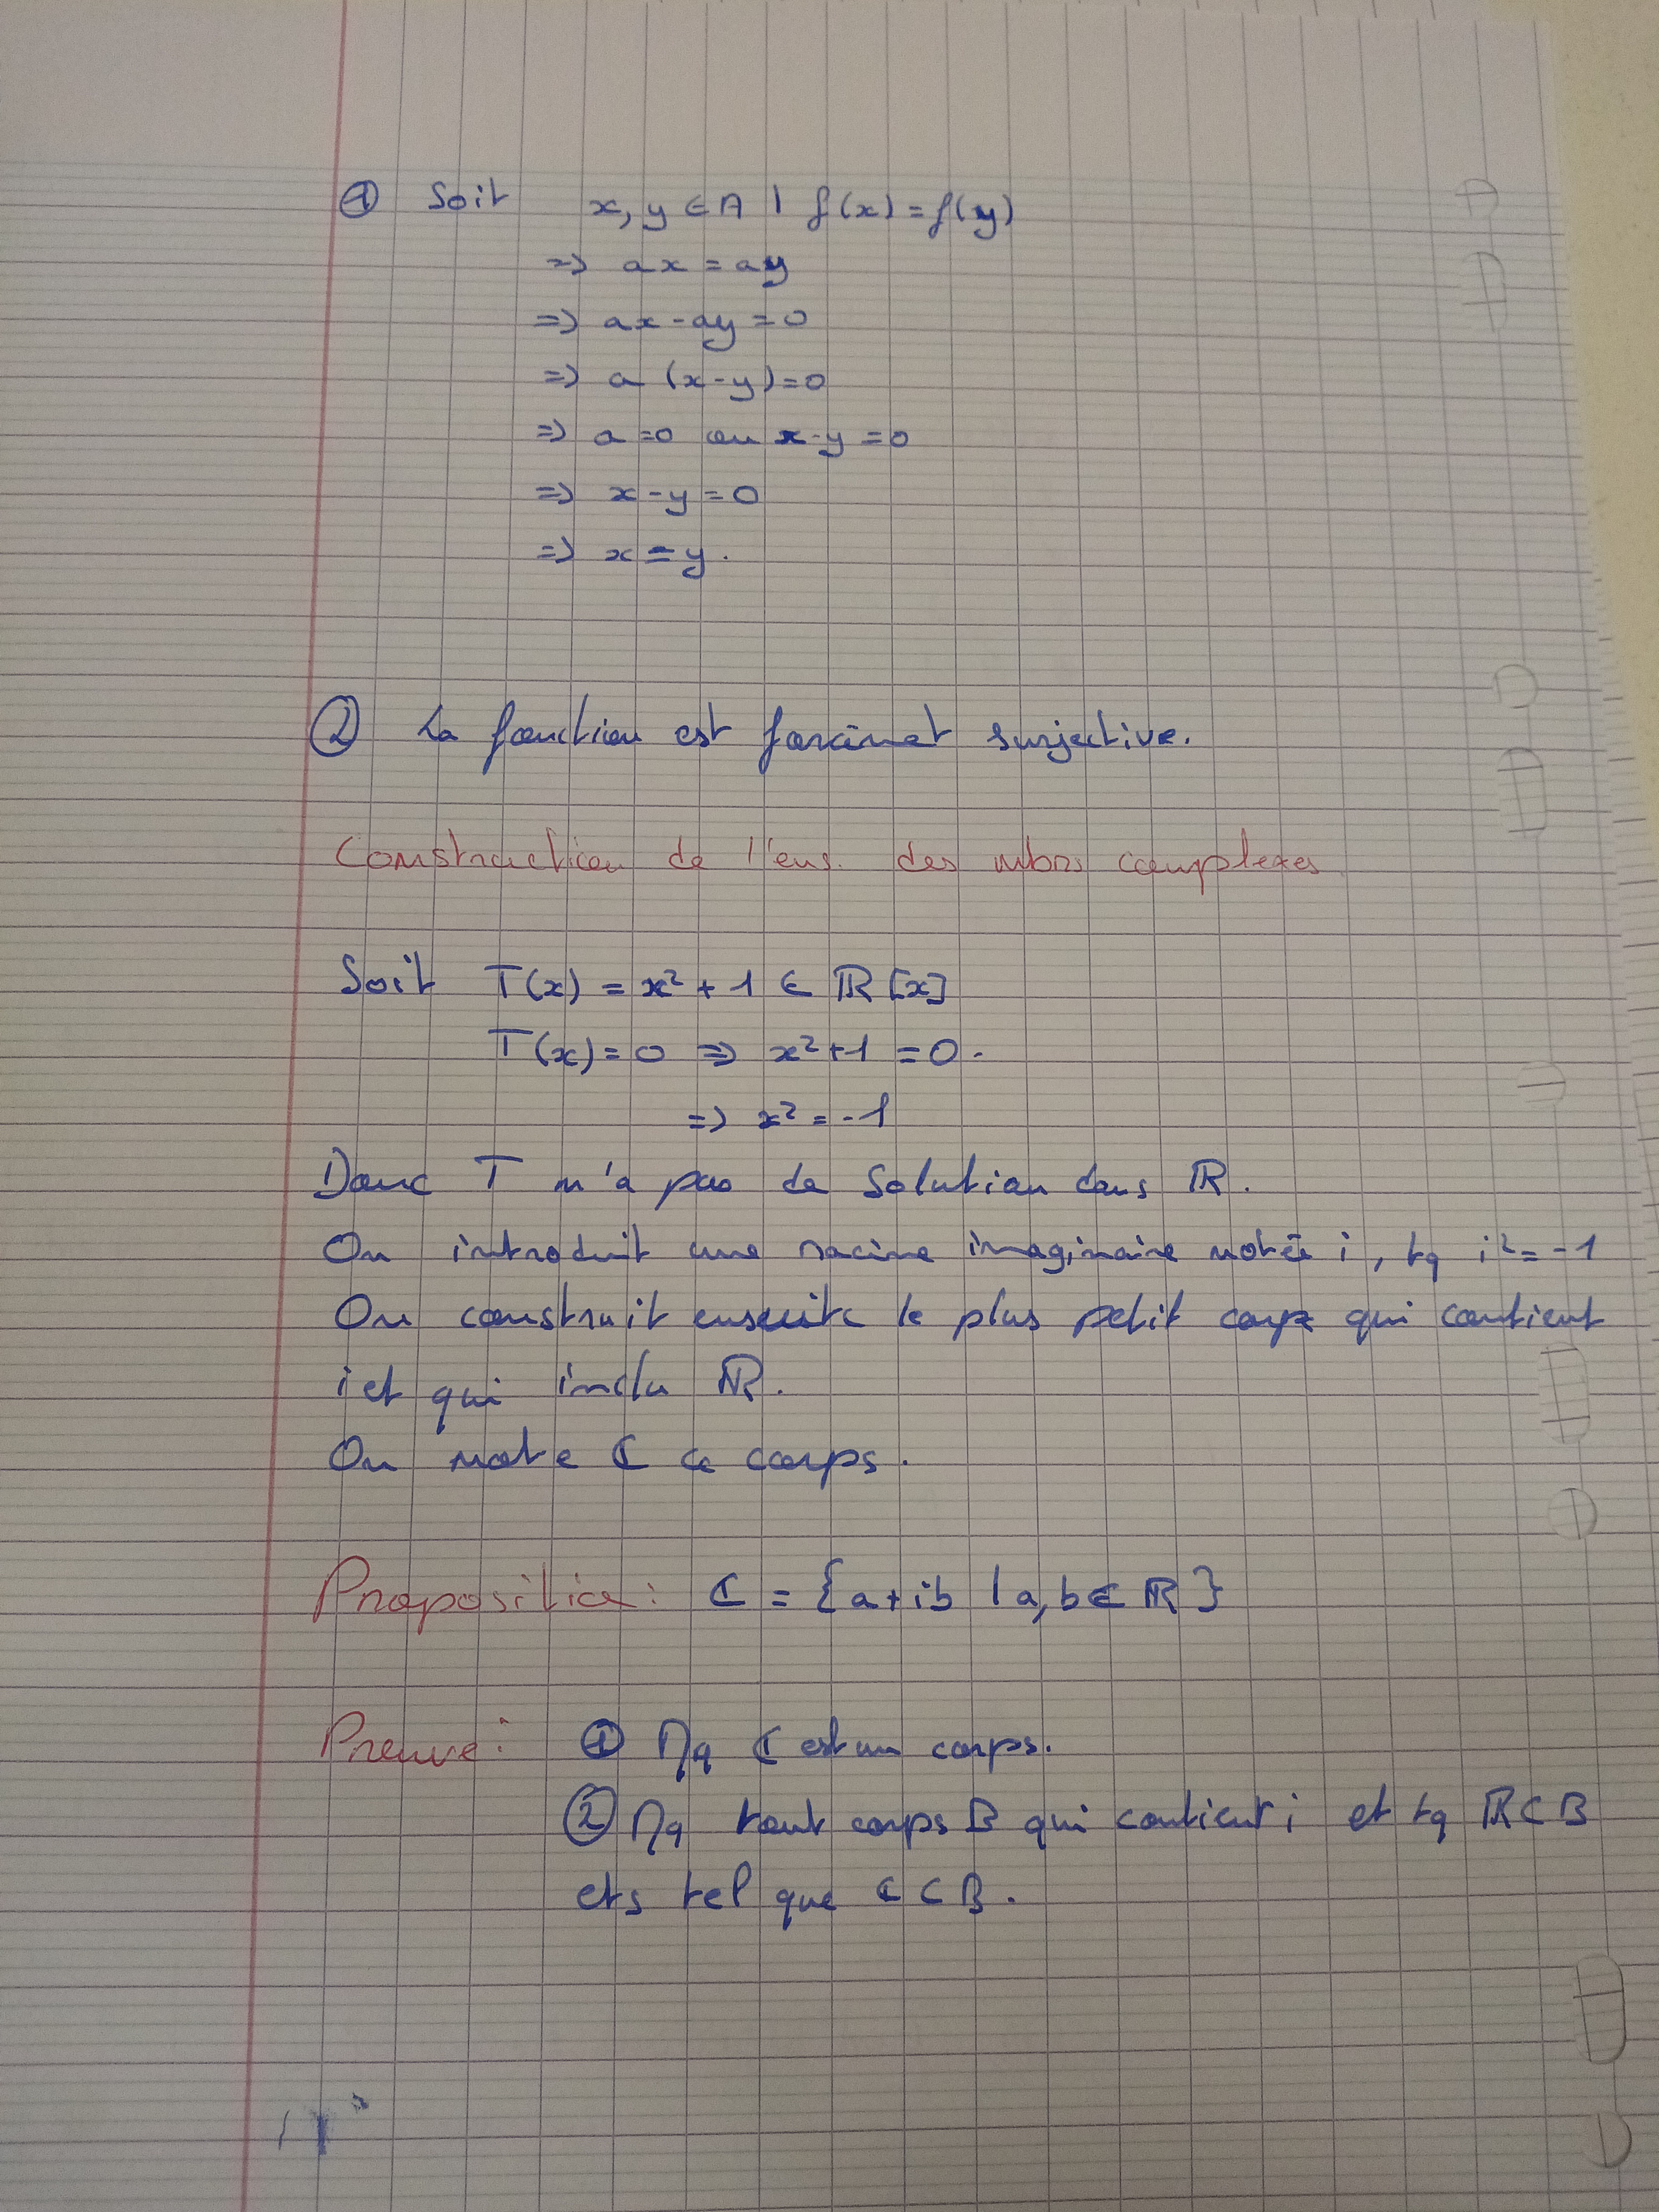 ① Soit x, y ∈ A | f(x) = f(y)
=> ax = ay
=> ax - ay = 0
=> a (x-y) = 0
=> a = 0 ou x-y = 0
=> x - y = 0
=> x = y.
② La fonction est forcémet surjective.
Construction de l'ens. des nbrs complexes
Soit T(x) = x² + 1 ∈ ℝ[x]
T(x) = 0 => x² + 1 = 0.
=> x² = -1
Donc T n'a pas de solution dans ℝ.
On introduit une racine imaginaire notée i, tq i² = -1
On construit ensuite le plus petit corps qui contient
i et qui inclu ℝ.
On note ℂ ce corps.
Proposition : ℂ = {a + ib | a, b ∈ ℝ}
Preuve : ① Mq ℂ est un corps.
② Mq tout corps B qui contient i et tq ℝ ⊂ B
ets tel que ℂ ⊂ B.